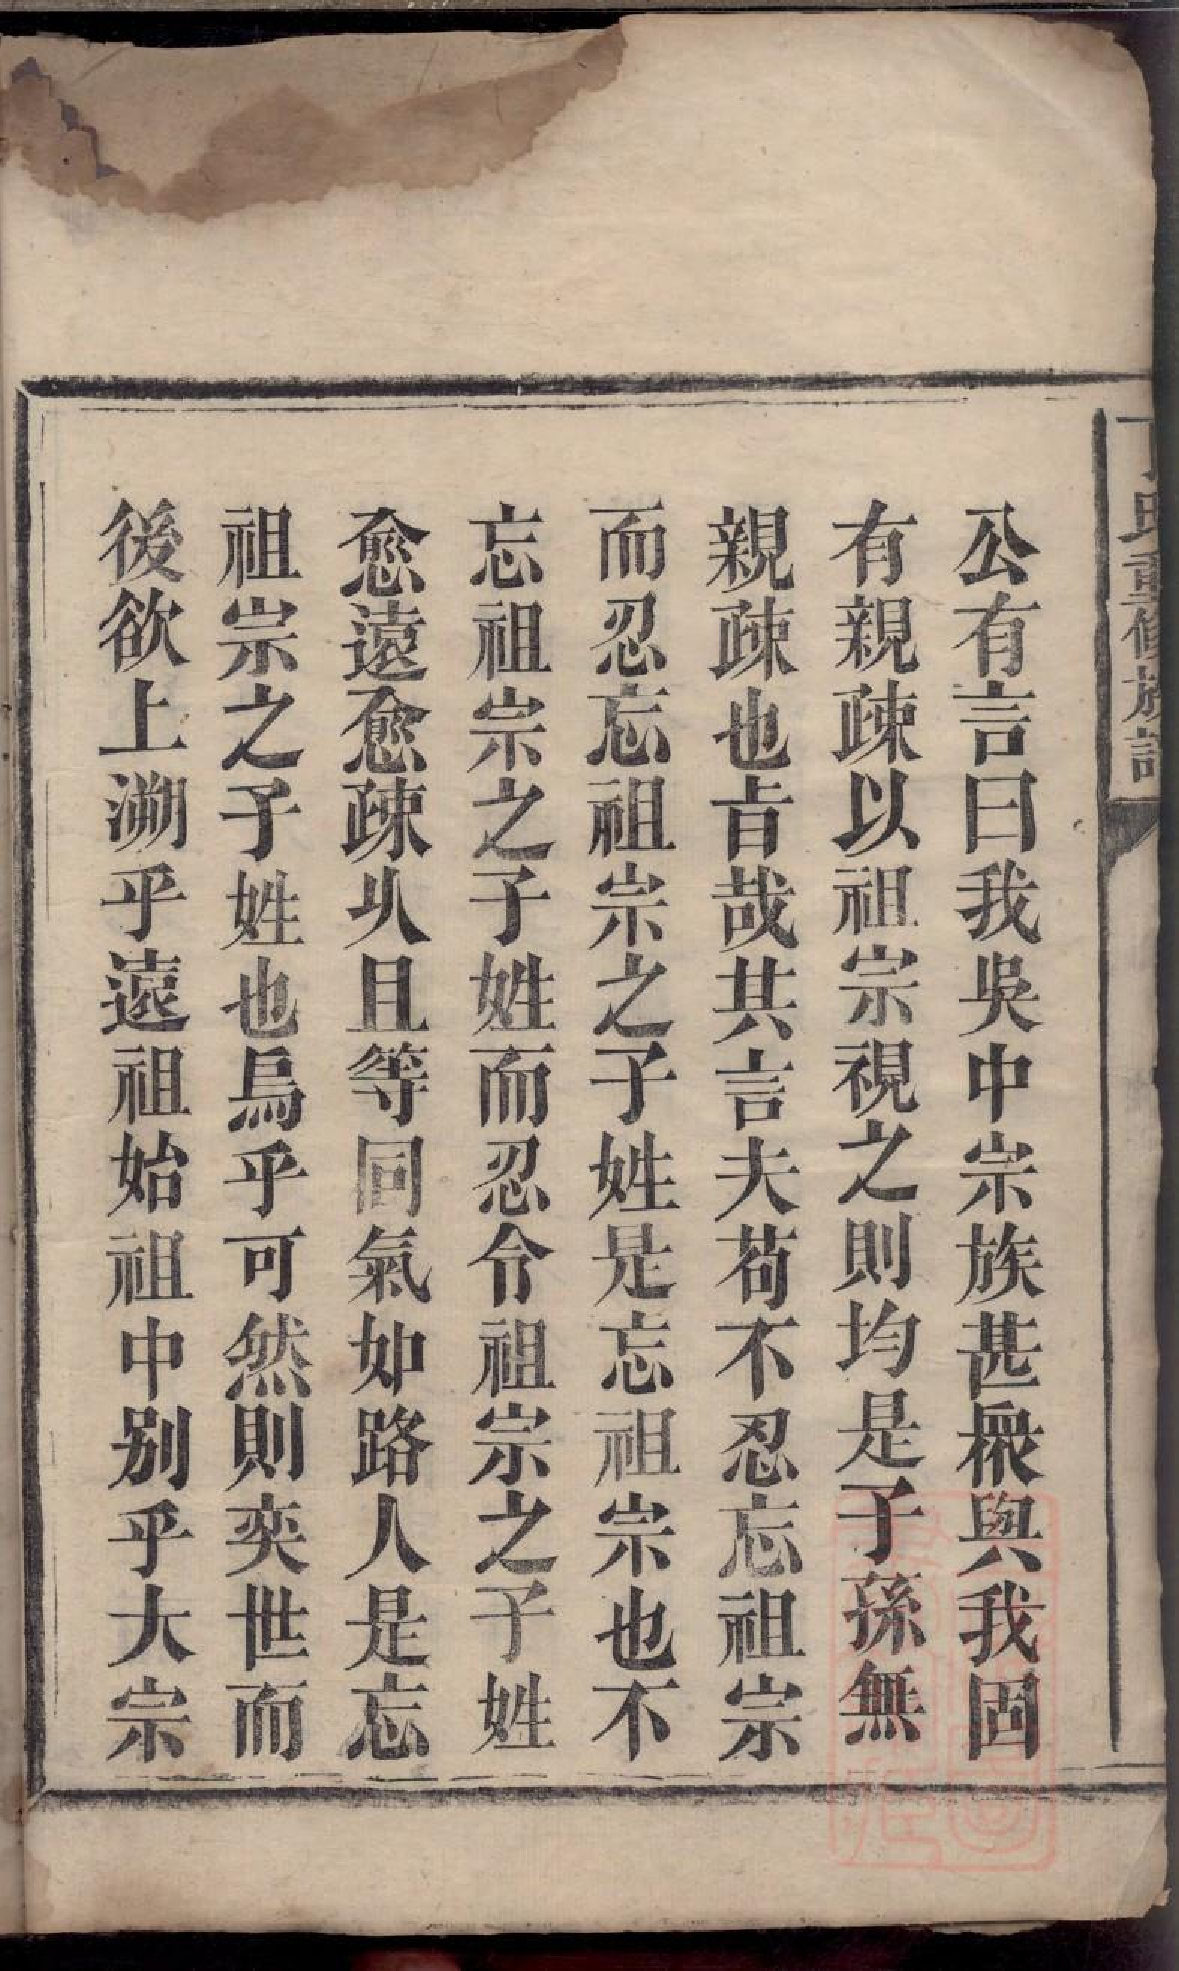 丁氏重修族譜
公有言曰我吳中宗族甚衆與我固
有親疎以祖宗視之則均是子孫無
親疎也旨哉其言夫苟不忍忘祖宗
而忍忘祖宗之子姓是忘祖宗也不
忘祖宗之子姓而忍令祖宗之子姓
愈遠愈疎乆且等同氣如路人是忘
祖宗之子姓也烏乎可然則奕世而
後欲上溯乎遠祖始祖中别乎大宗